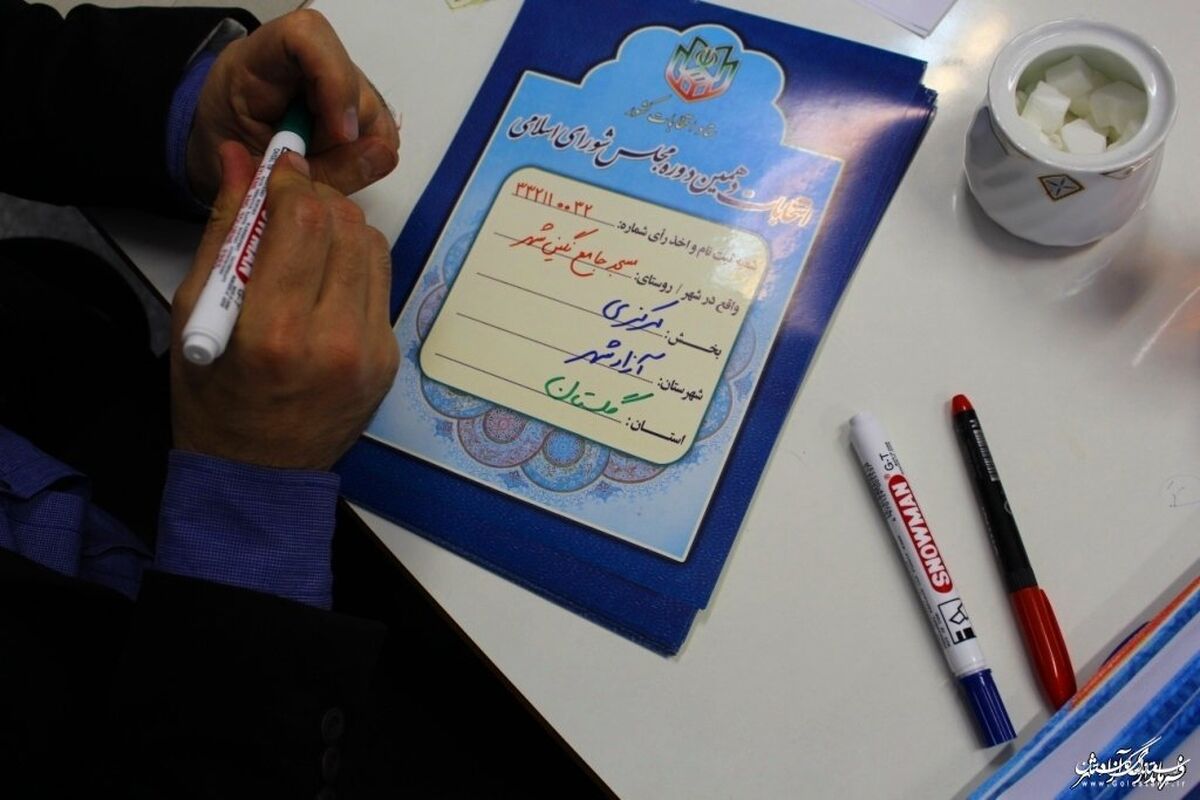 ستاد انتخابات کشور
انتخابات دهمین دوره مجلس شورای اسلامی
شعبه ثبت نام و اخذ رأی شماره: ۳۳۲۱۱۰۰۳۲
مسجد جامع نگین شهر
واقع در شهر / روستای:
بخش: مرکزی
شهرستان: آزادشهر
استان: گلستان
SNOWMAN
G-T
SNOWMAN